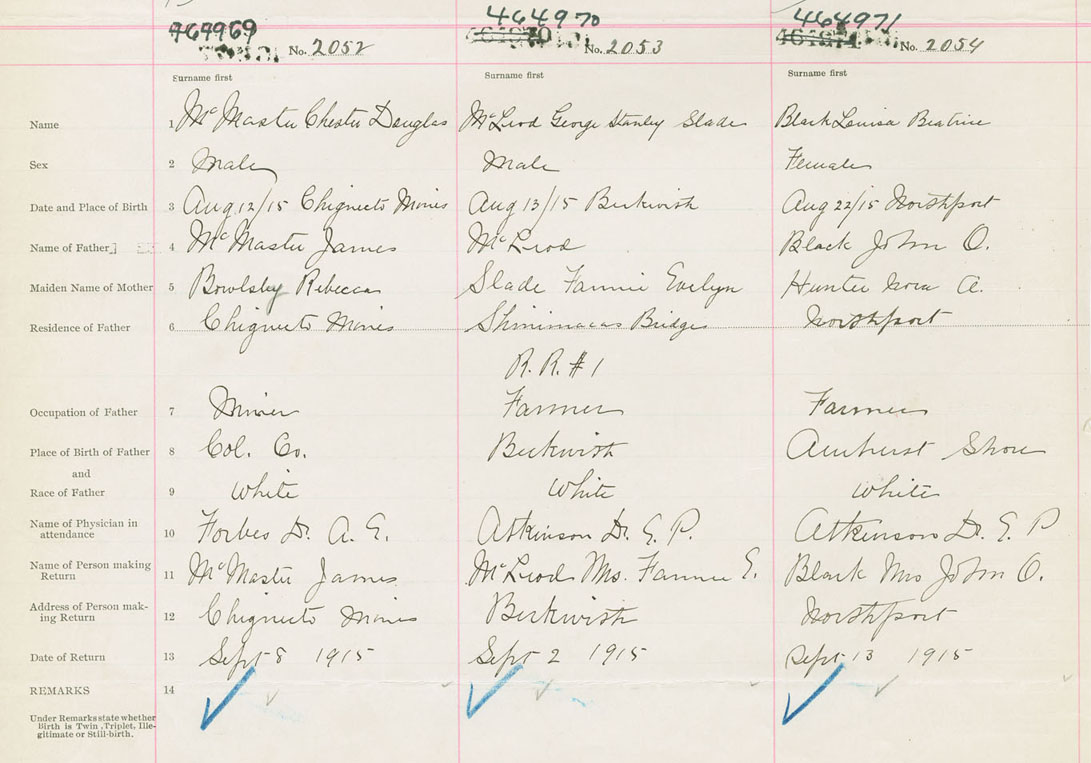 464969 464970 464971
No. 2052 No. 2053 No. 2054
Surname first Surname first Surname first
Name 1 McMaster Chester Douglas McLeod George Stanley Slade Black Louisa Beatrice
Sex 2 Male Male Female
Date and Place of Birth 3 Aug 12/15 Chignecto Mines Aug 13/15 Beckwith Aug 22/15 Northport
Name of Father 4 McMaster James McLeod Black John O.
Maiden Name of Mother 5 Bowlsby Rebecca Slade Fannie Evelyn Hunter Nora A.
Residence of Father 6 Chignecto Mines Shinimacas Bridge Northport
R. R. # 1
Occupation of Father 7 Miner Farmer Farmer
Place of Birth of Father 8 Col. Co. Beckwith Amherst Shore
and
Race of Father 9 White White White
Name of Physician in
attendance 10 Forbes Dr. A. E. Atkinson Dr. E. P. Atkinson Dr. E. P
Name of Person making
Return 11 McMaster James McLeod Mrs. Fannie E. Black Mrs John O.
Address of Person mak-
ing Return 12 Chignecto Mines Beckwith Northport
Date of Return 13 Sept 8 1915 Sept 2 1915 Sept 13 1915
REMARKS 14
Under Remarks state whether
Birth is Twin, Triplet, Ille-
gitimate or Still-birth.